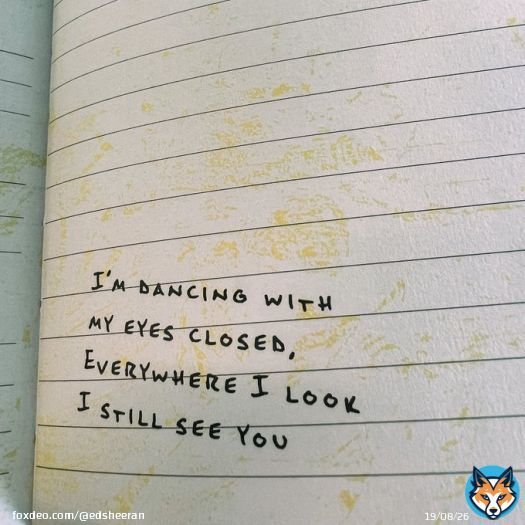 I'M DANCING WITH
MY EYES CLOSED,
EVERYWHERE I LOOK
I STILL SEE YOU
foxdeo.com/@edsheeran
19/08/26